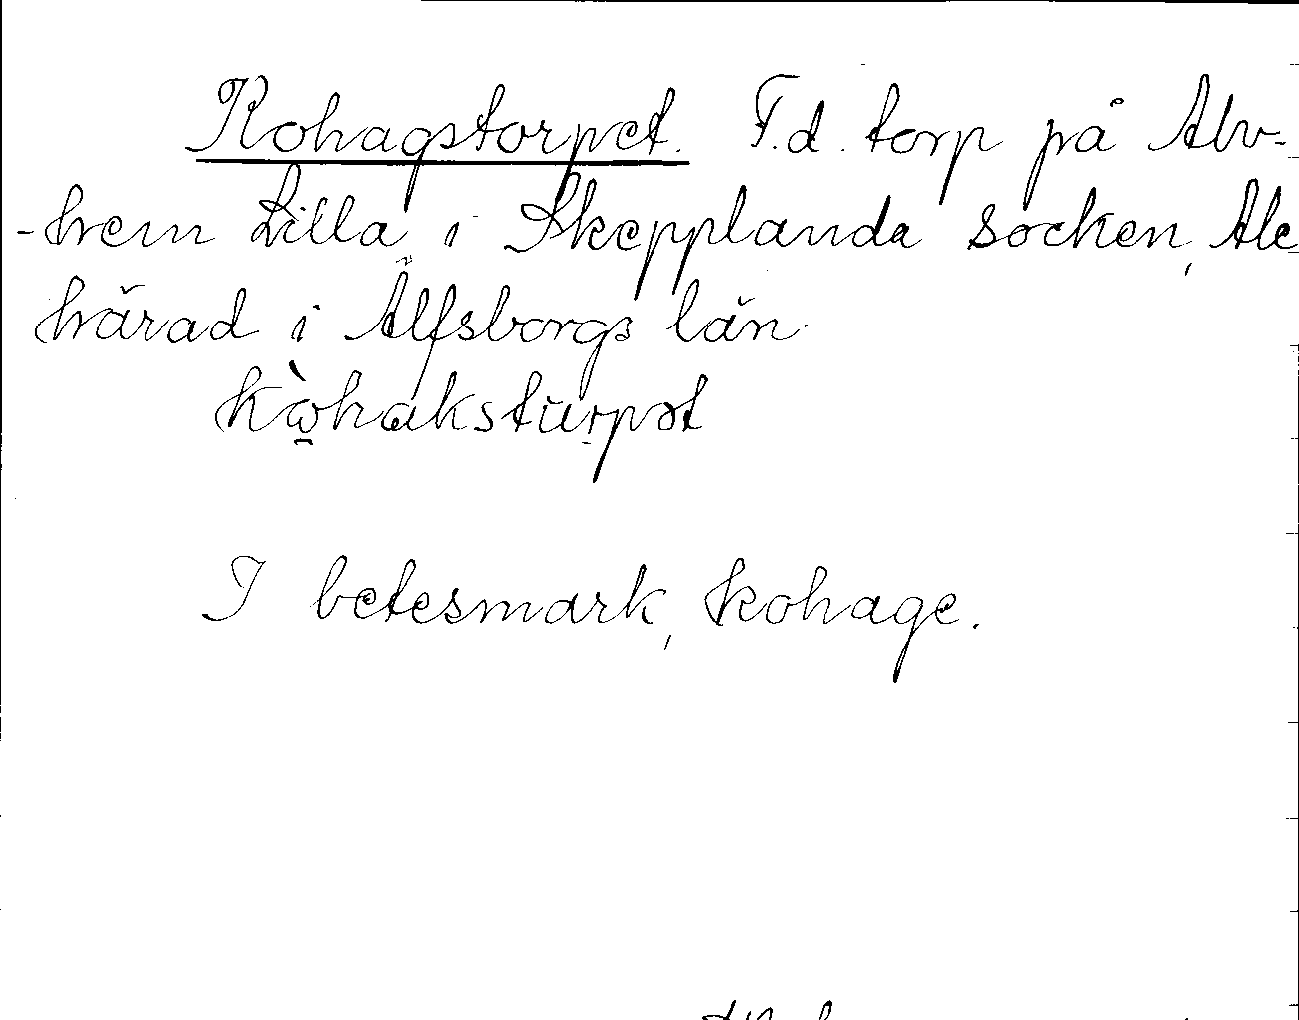 Kohagstorpet. F.d. torp på Alv-
-hem Lilla i Skepplanda socken, Ale
härad i Älfsborgs län
kὼhaksturpət
I betesmark, kohage.